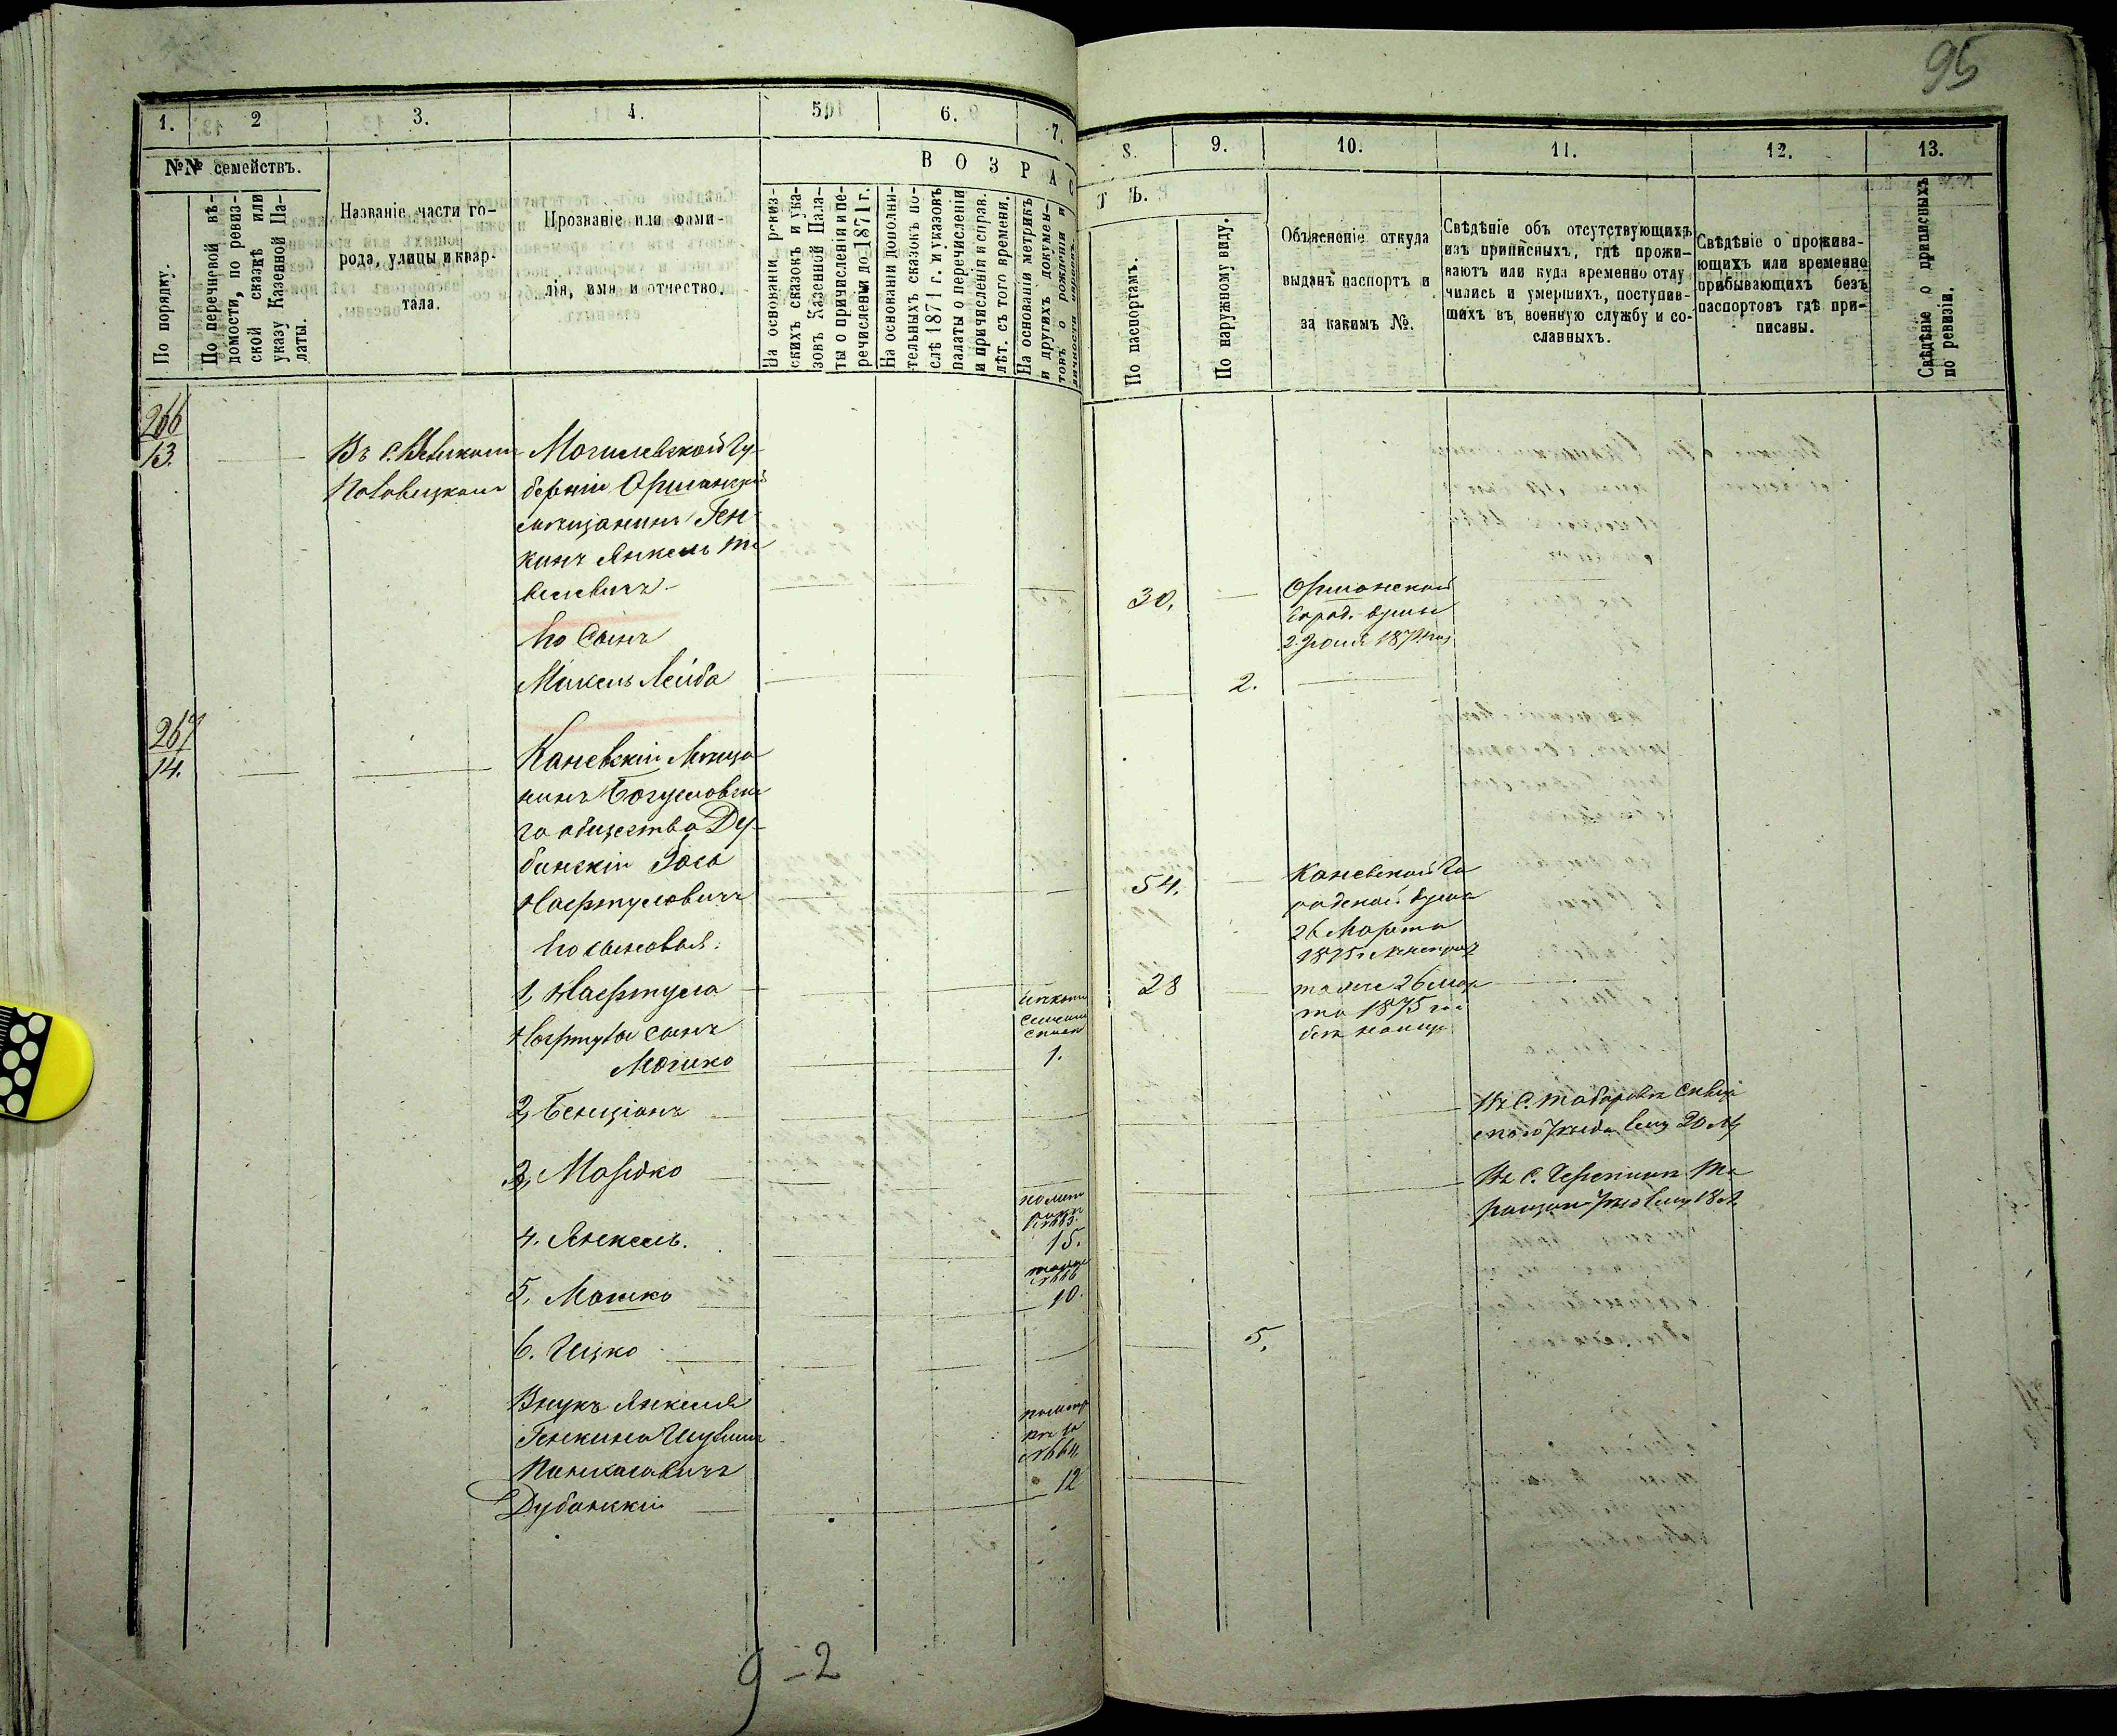 95
1.
2
3.
4.
5.
6.
7.
8.
9.
10.
11.
12.
13.
№№ семействъ.
По порядку.
По перечневой вѣ-
домости, по ревиз-
ской сказкѣ или
указу Казенной Па-
латы.
Названіе части го-
рода, улицы и квар-
тала.
Прозваніе или фами-
лія, имя и отчество.
ВОЗРАС
ТЪ.
На основаніи ревиз-
скихъ сказокъ и ука-
зовъ Казенной Пала-
ты о причисленіи и пе-
речислены до 1871 г.
На основаніи дополни-
тельныхъ сказокъ по-
слѣ 1871 г. и указовъ
палаты о перечисленіи
и причисленіи справ.
лѣт. съ того времени.
На основаніи метрикъ
и другихъ докумен-
товъ о рожденіи и
По паспортамъ.
По наружному виду.
Объясненіе откуда
выданъ паспортъ и
за какимъ №.
Свѣдѣніе объ отсутствующихъ
изъ приписныхъ, гдѣ прожи-
ваютъ или куда временно отлу
чились и умершихъ, поступив-
шихъ въ военную службу и со-
сланныхъ.
Свѣдѣніе о прожива-
ющихъ или временно
прибывающихъ безъ
паспортовъ гдѣ при-
писаны.
Свѣдѣніе о приписныхъ
по ревизіи.
266
13.
Въ с. Великомъ
Половецкомъ
Могилевской Гу-
берніи Оршанскій
мѣщанинъ Ген-
кинъ Янкель
30.
Оршанской
Город. думы
2 1872
Его Сынъ
Михель Лейба
2.
267
14.
Каневскій Мѣща
нинъ Богуславска
го общества Ду-
бинскій Іось
Нафтуловичъ
54.
Каневской Го
родской думы
26 Марта
1875
Его сыновья:
1, Нафтула
28
тоже 26 мар
та 1875
Нафтулы сынъ
Мошко
1.
2, Бенціонъ
Въ С.
20 л
3, Мордко
Въ С. Черепинъ Та
ращан 18 л
4. Янкель.
15.
5. Мошко
10.
6. Ицко
5.
Внукъ Янкеля
Генкина
Пинхасовичъ
Дубинскій
№ 664.
12
9-2